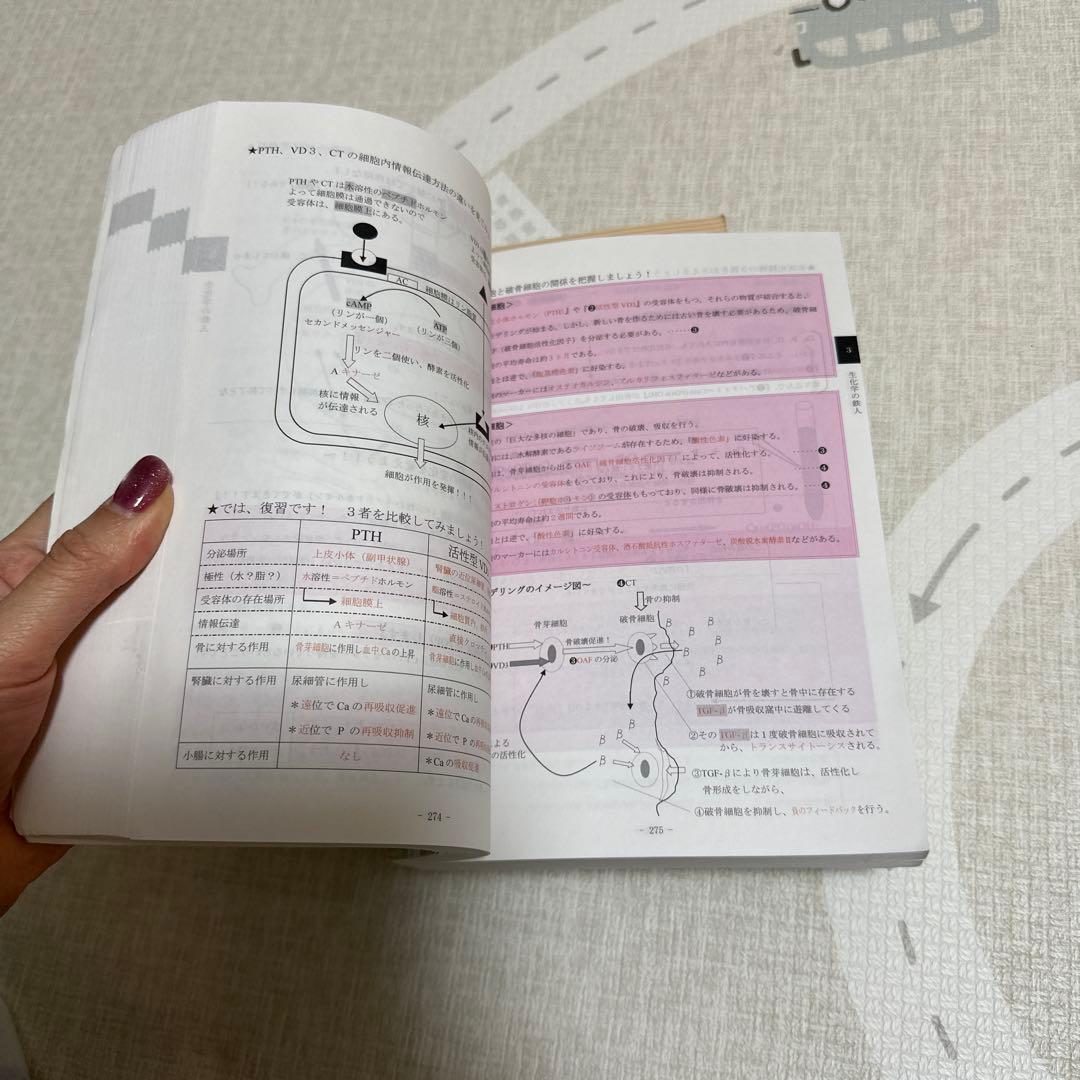 ★PTH、VD3、CTの細胞内情報伝達方法の違いを
PTHやCTは水溶性のペプチドホルモン
よって細胞膜は通過できないので
受容体は、細胞膜上にある。
AC
細胞膜はリン脂質
cAMP
(リンが一個)
セカンドメッセンジャー
ATP
(リンが三個)
リンを二個使い、酵素を活性化
Aキナーゼ
核に情報
が伝達される
核
細胞が作用を発揮!!!
★では、復習です! 3者を比較してみましょう!
PTH
活性型VD
分泌場所
上皮小体(副甲状腺)
腎臓の近位尿細管
極性(水?脂?)
水溶性=ペプチドホルモン
脂溶性=ステロイド
受容体の存在場所
細胞膜上
細胞質内、
情報伝達
Aキナーゼ
直接クロマチン
骨に対する作用
骨芽細胞に作用し血中Caの上昇
骨芽細胞に作用し
腎臓に対する作用
尿細管に作用し
*遠位でCaの再吸収促進
*近位でPの再吸収抑制
尿細管に作用し
*遠位でCaの再吸収
*近位でPの再吸収
小腸に対する作用
なし
*Caの吸収促進
- 274 -
胞と破骨細胞の関係を把握しましょう!
細胞>
小体ホルモン(PTH)』や『❷活性型VD3』の受容体をもつ、それらの物質が結合すると、
デリングが始まる。しかし、新しい骨を作るためには古い骨を壊す必要があるため、破骨細
(破骨細胞活性化因子)を分泌する必要がある。‥‥❸
の平均寿命は約3ヶ月である。
とは逆で、『塩基性色素』に好染する。
のマーカーにはオステオカルシン、アルカリフォスファターゼなどがある。
細胞>
の「巨大な多核の細胞」であり、骨の破壊、吸収を行う。
には、水解酵素であるライソゾームが存在するため、『酸性色素』に好染する。
は、骨芽細胞から出るOAF(破骨細胞活性化因子)によって、活性化する。 ❸
ルシトニンの受容体をもっており、これにより、骨破壊は抑制される。 ❹
ストロゲン(卵胞ホルモン)の受容体ももっており、同様に骨破壊は抑制される。 ❹
の平均寿命は約2週間である。
とは逆で、『酸性色素』に好染する。
のマーカーにはカルシトニン受容体、酒石酸抵抗性ホスファターゼ、炭酸脱水酵素Ⅱなどがある。
デリングのイメージ図~
❹CT
骨の抑制
骨芽細胞
破骨細胞
PTH
VD3
骨破壊促進!
❸OAFの分泌
β
β
β
β
β
β
β
①破骨細胞が骨を壊すと骨中に存在する
TGF-βが骨吸収窩中に遊離してくる
②そのTGF-βは1度破骨細胞に吸収されて
から、トランスサイトーシスされる。
による
の活性化
β
β
β
β
③TGF-βにより骨芽細胞は、活性化し
骨形成をしながら、
④破骨細胞を抑制し、負のフィードバックを行う。
- 275 -
3
生化学の鉄人